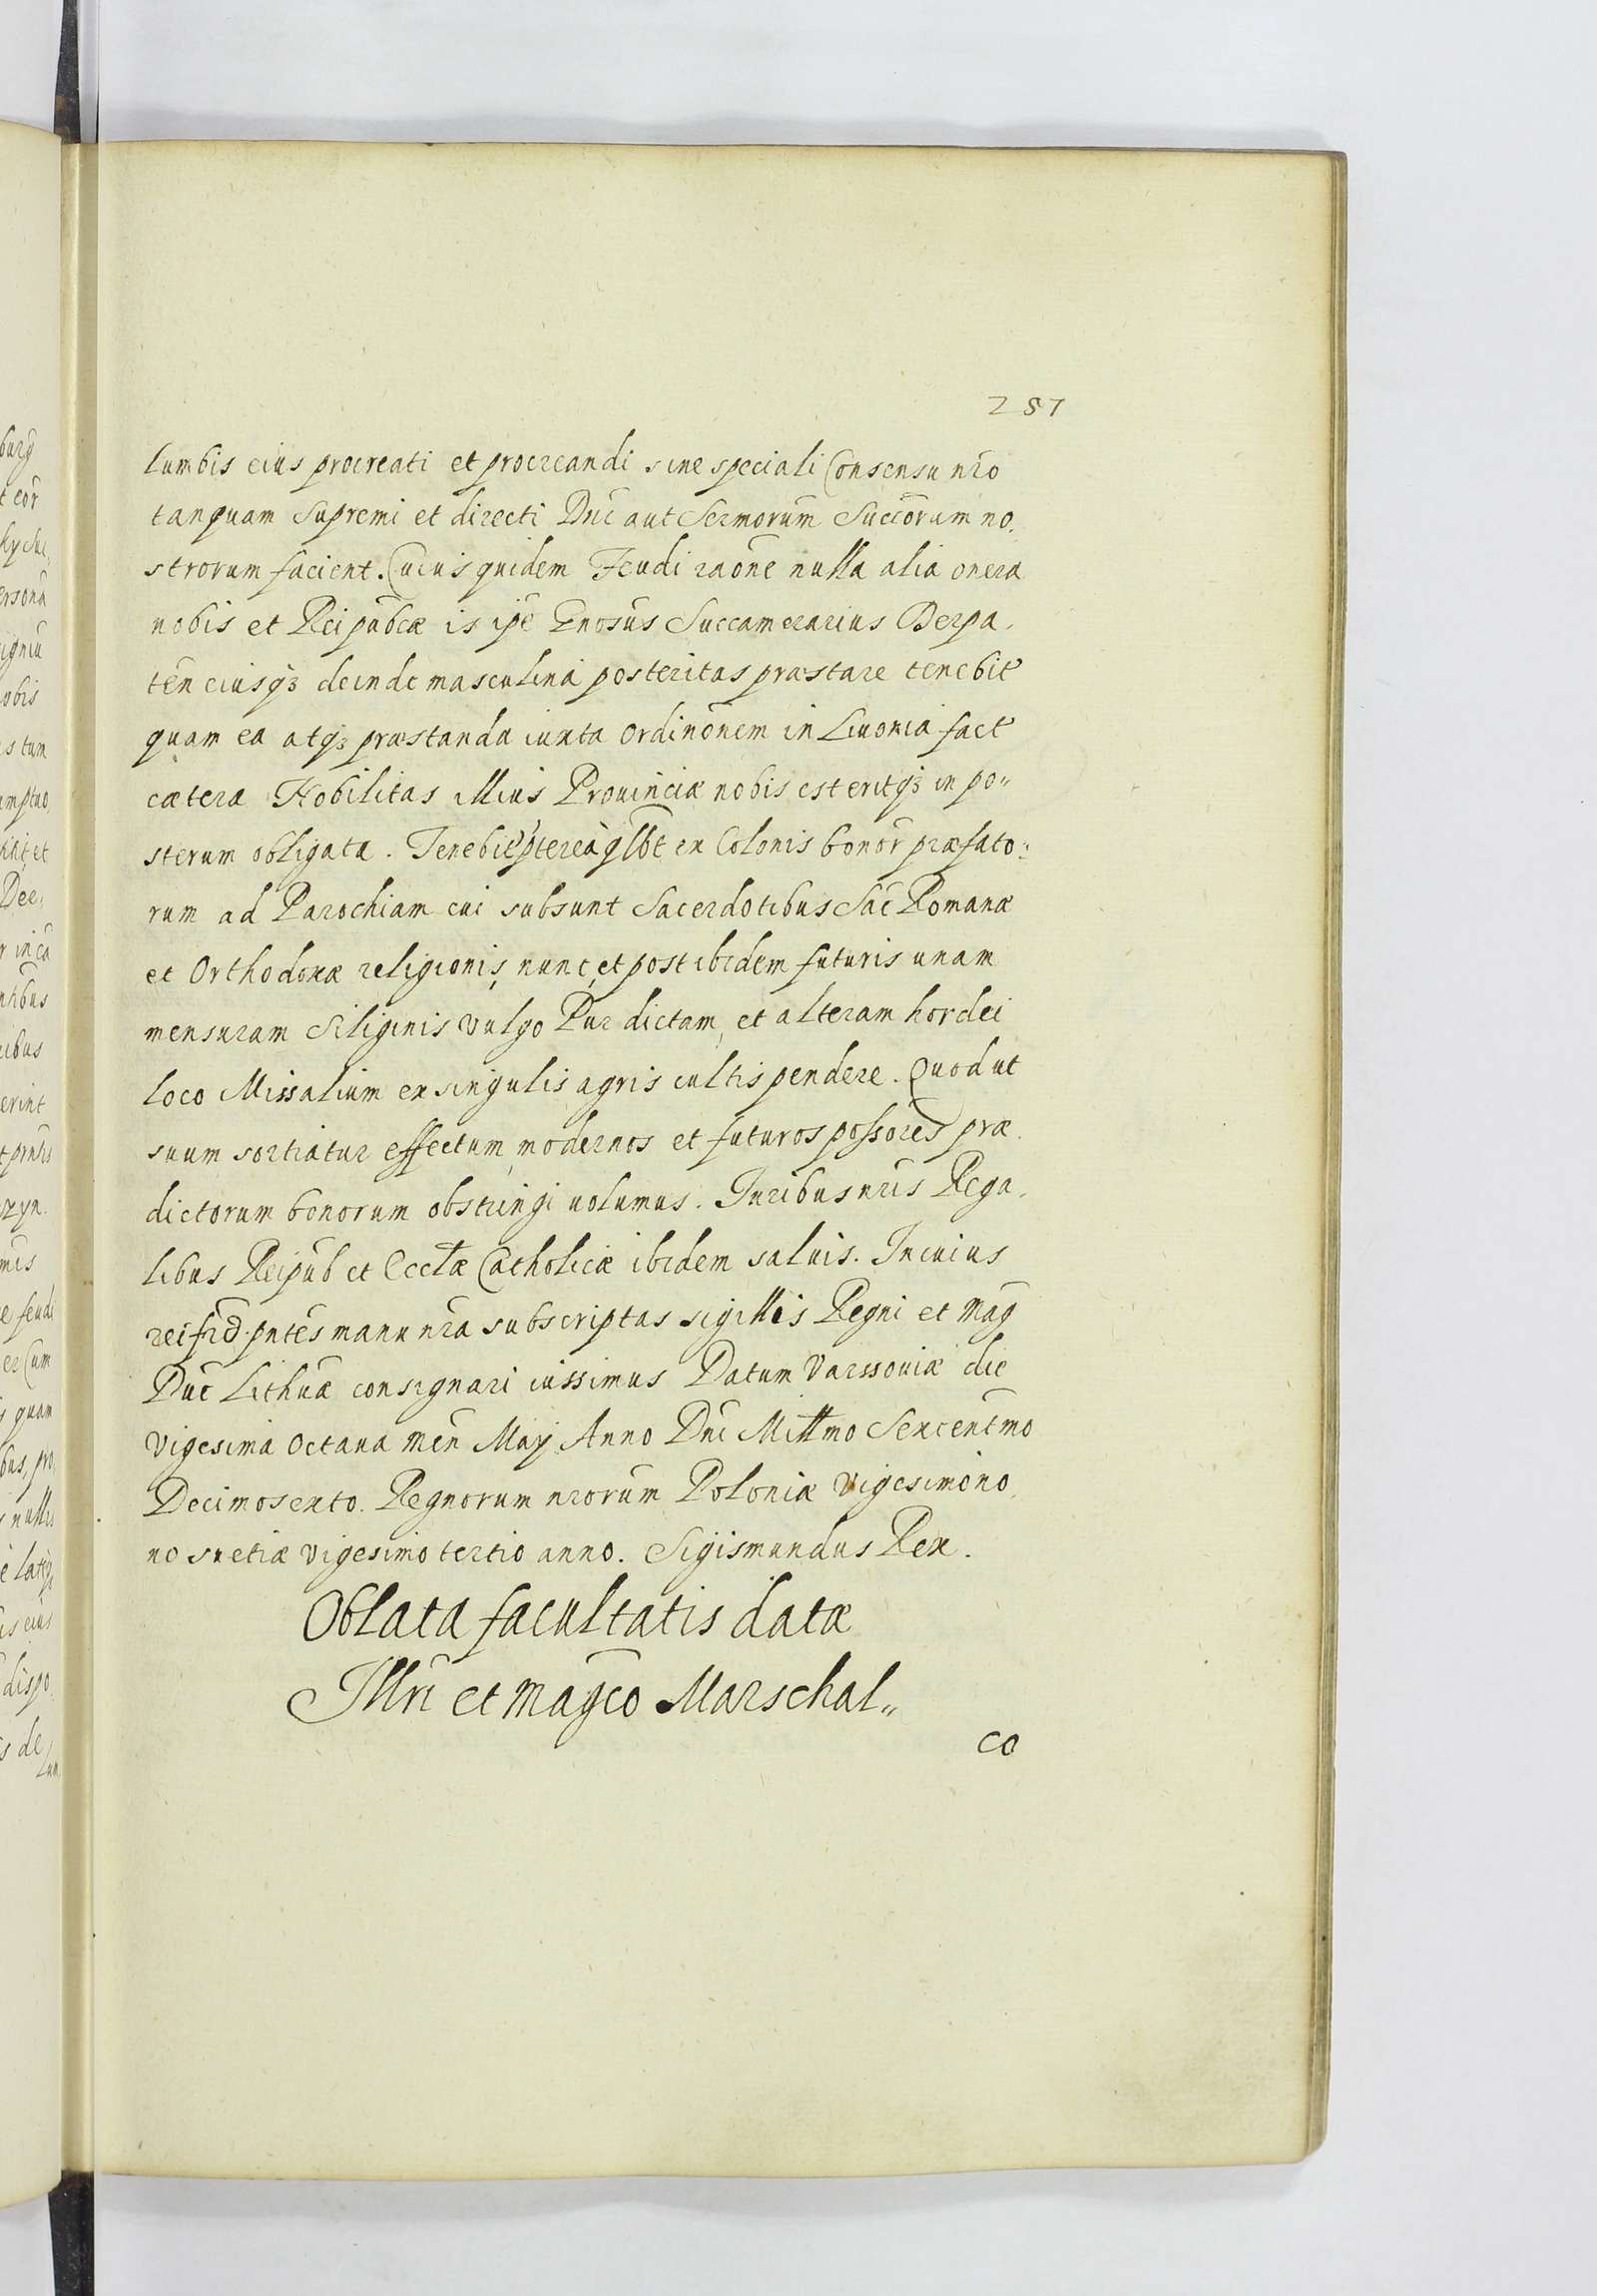 257
lumbis eius procreati et procreandi sine speciali Consensu nr̄o
tanquam Supremi et directi Dn̄i aut Serm̄orum Succ̄orum no,
strorum facient. Cuius quidem Feudi raōne nulla alia onera
nobis et Reipub̄cæ is ip̄e Gn̄osus Succamerarius Derpa,
tēn eiusqꝫ deinde masculina posteritas præstare tenebit
quam ea atqꝫ præstanda iuxta Ordinōnem in Liuonia fact
cætera Nobilitas illius Prouinciæ nobis est eritqꝫ in po„
sterum obligata. Tenebit p̄terea qlb̄t ex Colonis bonōr præfato:
rum ad Parochiam cui subsunt Sacerdotibus Sac̄ Romanæ
et Orthodoxæ religionis, nunc, et post ibidem futuris unam
mensuram Siliginis vulgo Pur dictam, et alteram hordei
loco Missalium ex singulis agris cultis pendere. Quod ut
suum sortiatur effectum, modernos et futuros possores præ,
dictorum bonorum obstringi uolumus. Iuribus nr̄is Rega,
libus Reipub̄ et Eccl̄æ Catholicæ ibidem saluis. In cuius
rei fid̄. pn̄tes manu nr̄a subscriptas sigillis Regni et Mag
Duc̄ Lithuǣ consignari iussimus Datum Varssouiæ die
Vigesima Octaua Men̄ Maij Anno Dn̄i Mill̄mo Sexcent̄mo
Decimosexto. Regnorum nr̄orum Poloniæ Vigesimo no,
no suetiæ vigesimo tertio anno. Sigismundus Rex.
Oblata facultatis datæ
Illr̄i et Maḡco Marschal„
co